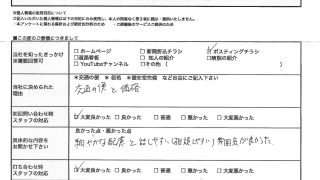 個人情報の使用目的について
※記入いただいた個人情報は以下の目的にのみ使用し、本人の同意なく第三者に開示・提供いたしません。
・本アンケートに関わる統計および検討分析のため ・ご葬儀後のサービスの提供のため
■この度のご葬儀につきまして
当社を知ったきっかけ
※複数回答可
□ ホームページ □ 新聞折込チラシ ☑ ポスティングチラシ
□ 道路看板 □ 知人の紹介 □ 病院の紹介
□ YouTubeチャンネル □ その他( )
当社に決められた
理由
*交通の便 * 価格 *歴史変更 など自由にご記入下さい
交通の便と価格
初回問い合わせ時
スタッフの対応
☑ 大変良かった □ 良かった □ 普通 □ 悪かった □ 大変悪かった
具体的な内容を
お聞かせ下さい
良かった点・悪かった点
細やかな配慮と話しやすい(相談しやすい)雰囲気が良かった
打ち合わせ時
スタッフの対応
☑ 大変良かった □ 良かった □ 普通 □ 悪かった □ 大変悪かった